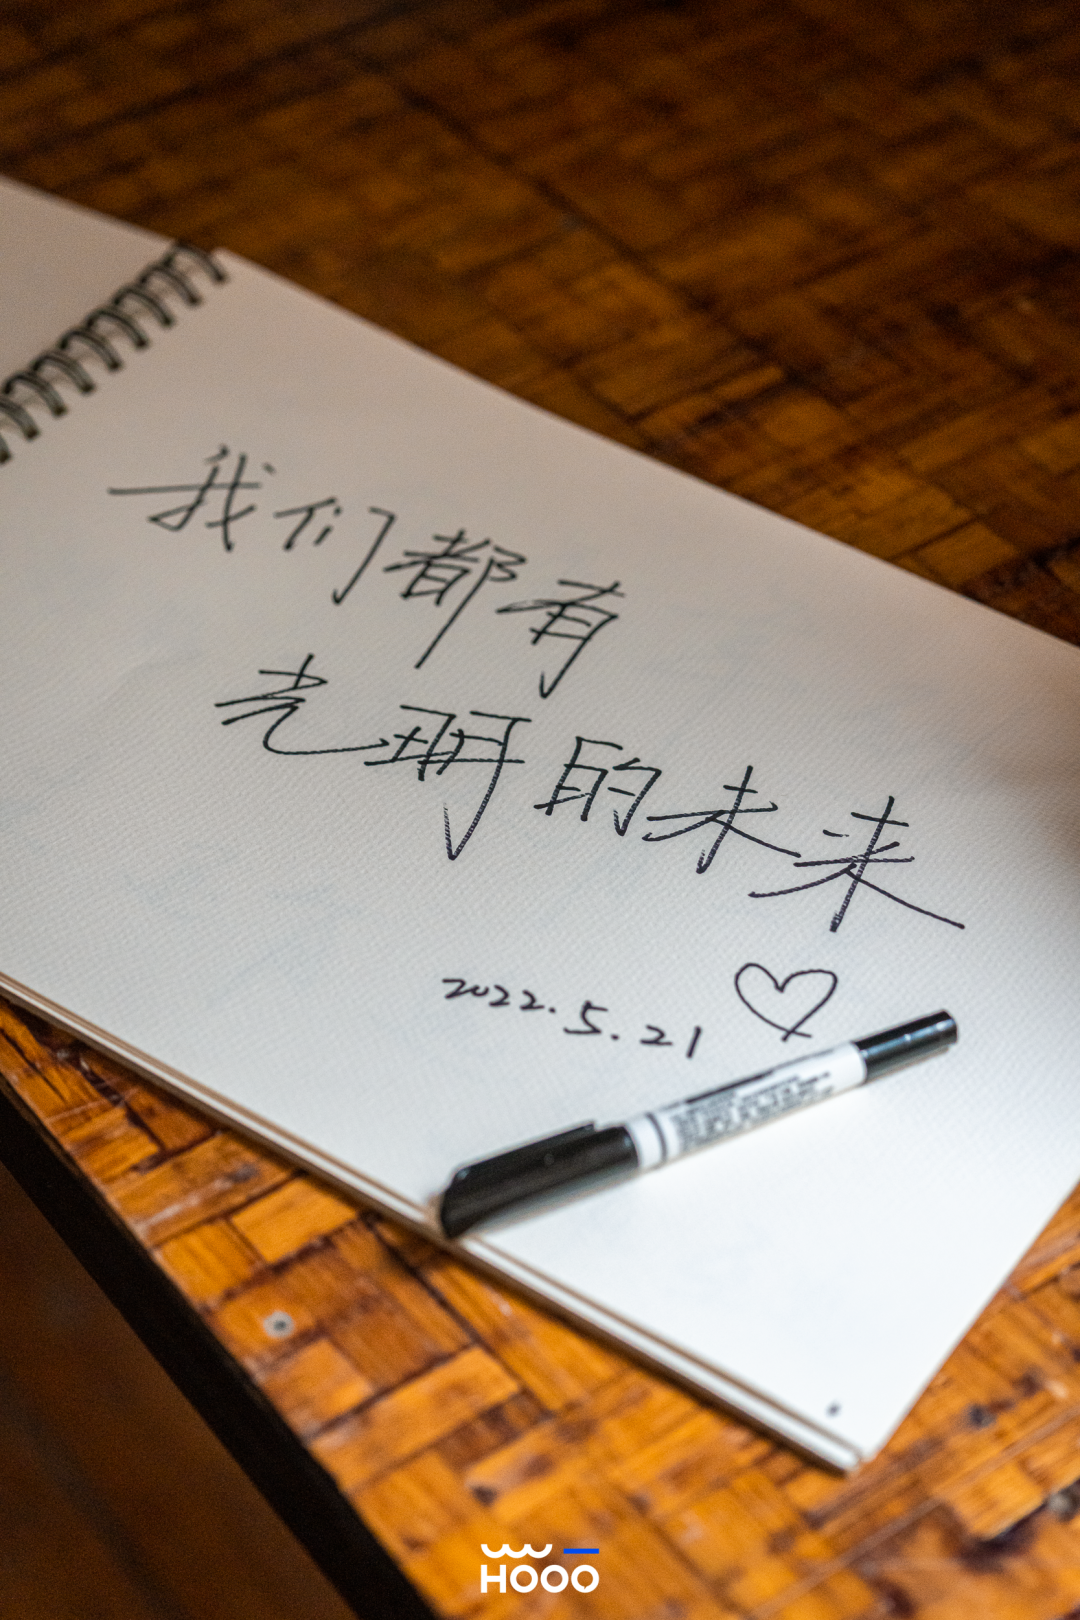 我们都有
光明的未来
2022.5.21
HOOO